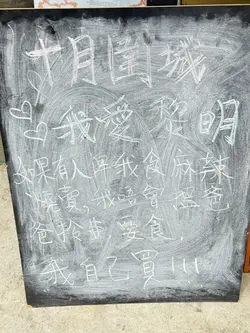 十月圍城
我愛黎明
如果有人俾我食麻辣
燒賣,我唔會搵爸
爸 食,
我自己買!!!